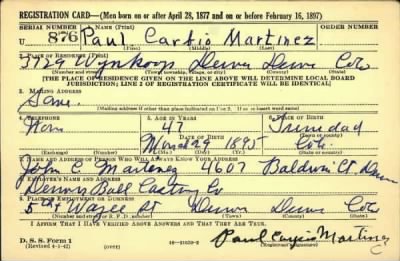 REGISTRATION CARD—(Men born on or after April 28, 1877 and on or before February 16, 1897)
SERIAL NUMBER 1. NAME (Print) ORDER NUMBER
U 876 Paul Martinez
(First) (Middle) (Last)
2. PLACE OF RESIDENCE (Print)
Denver Denver Colo
(Number and street) (Town, township, village, or city) (County) (State)
[THE PLACE OF RESIDENCE GIVEN ON THE LINE ABOVE WILL DETERMINE LOCAL BOARD
JURISDICTION; LINE 2 OF REGISTRATION CERTIFICATE WILL BE IDENTICAL]
3. MAILING ADDRESS
Same
[Mailing address if other than place indicated on line 2. If same insert word same]
4. TELEPHONE 5. AGE IN YEARS 6. PLACE OF BIRTH
None 47 Trinidad
DATE OF BIRTH (Town or county)
March 29 1895 Colo
(Mo.) (Day) (Yr.) (State or country)
7. NAME AND ADDRESS OF PERSON WHO WILL ALWAYS KNOW YOUR ADDRESS
John C. Martinez 4607 Baldwin Ct Denver
8. EMPLOYER'S NAME AND ADDRESS
Denver Co
9. PLACE OF EMPLOYMENT OR BUSINESS
5th & Wazee St Denver Denver Colo
(Number and street or R. F. D. number) (Town) (County) (State)
I AFFIRM THAT I HAVE VERIFIED ABOVE ANSWERS AND THAT THEY ARE TRUE.
D. S. S. Form 1
(Revised 4-1-42) (over) Paul Martinez
(Registrant's signature)